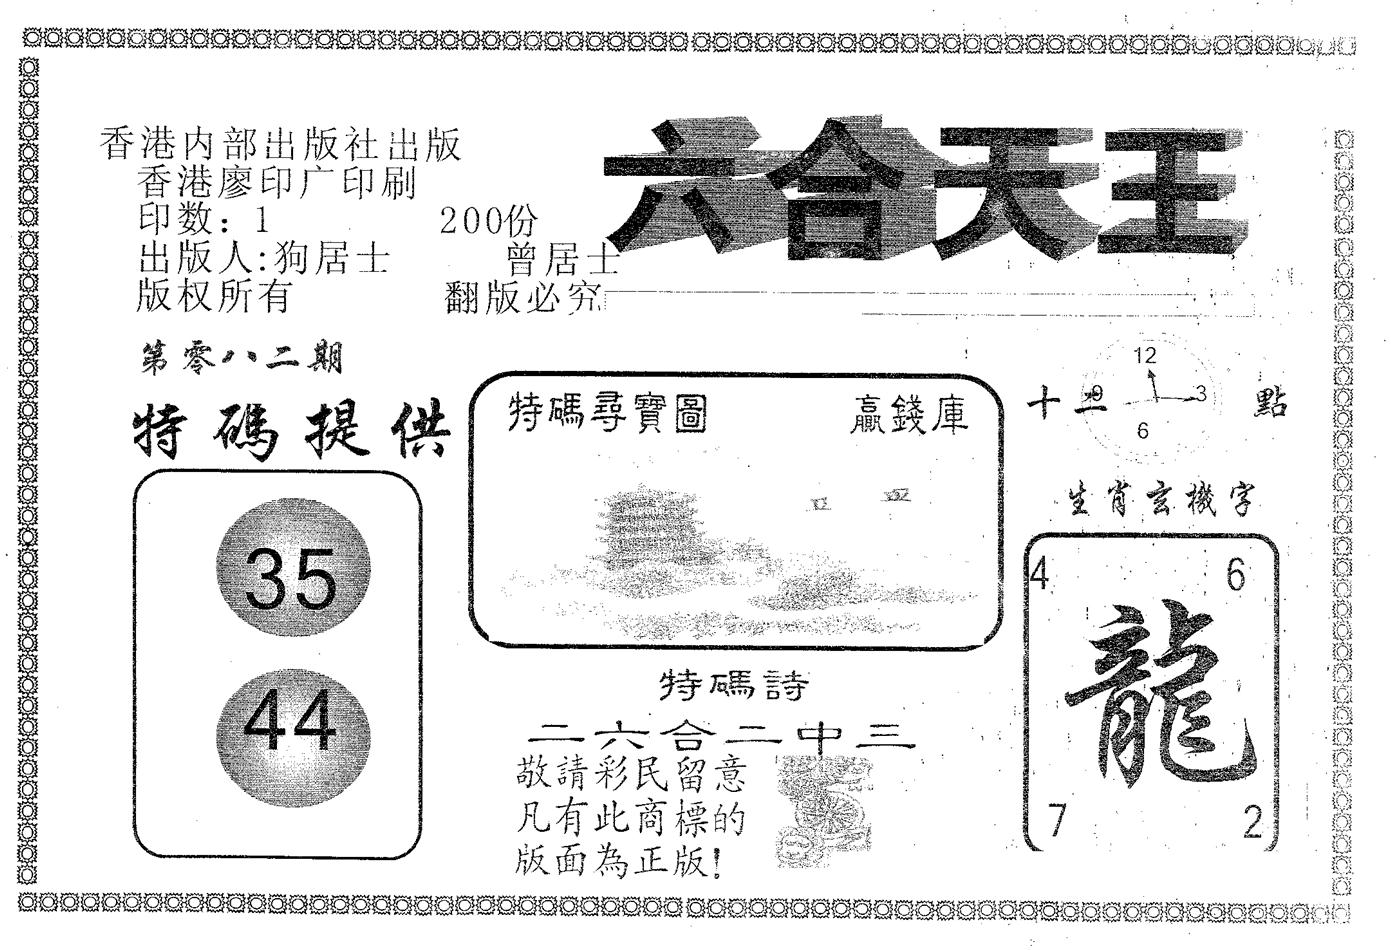 香港内部出版社出版
香港廖印广印刷
印数: 1 200份
出版人:狗居士 曾居士
版权所有 翻版必究
六合天王
第零八二期
特碼提供
35
44
特碼尋寶圖 贏錢庫
特碼詩
二六合二中三
敬請彩民留意
凡有此商標的
版面為正版!
12
十二 9 3 點
6
生肖玄機字
4 6
龍
7 2